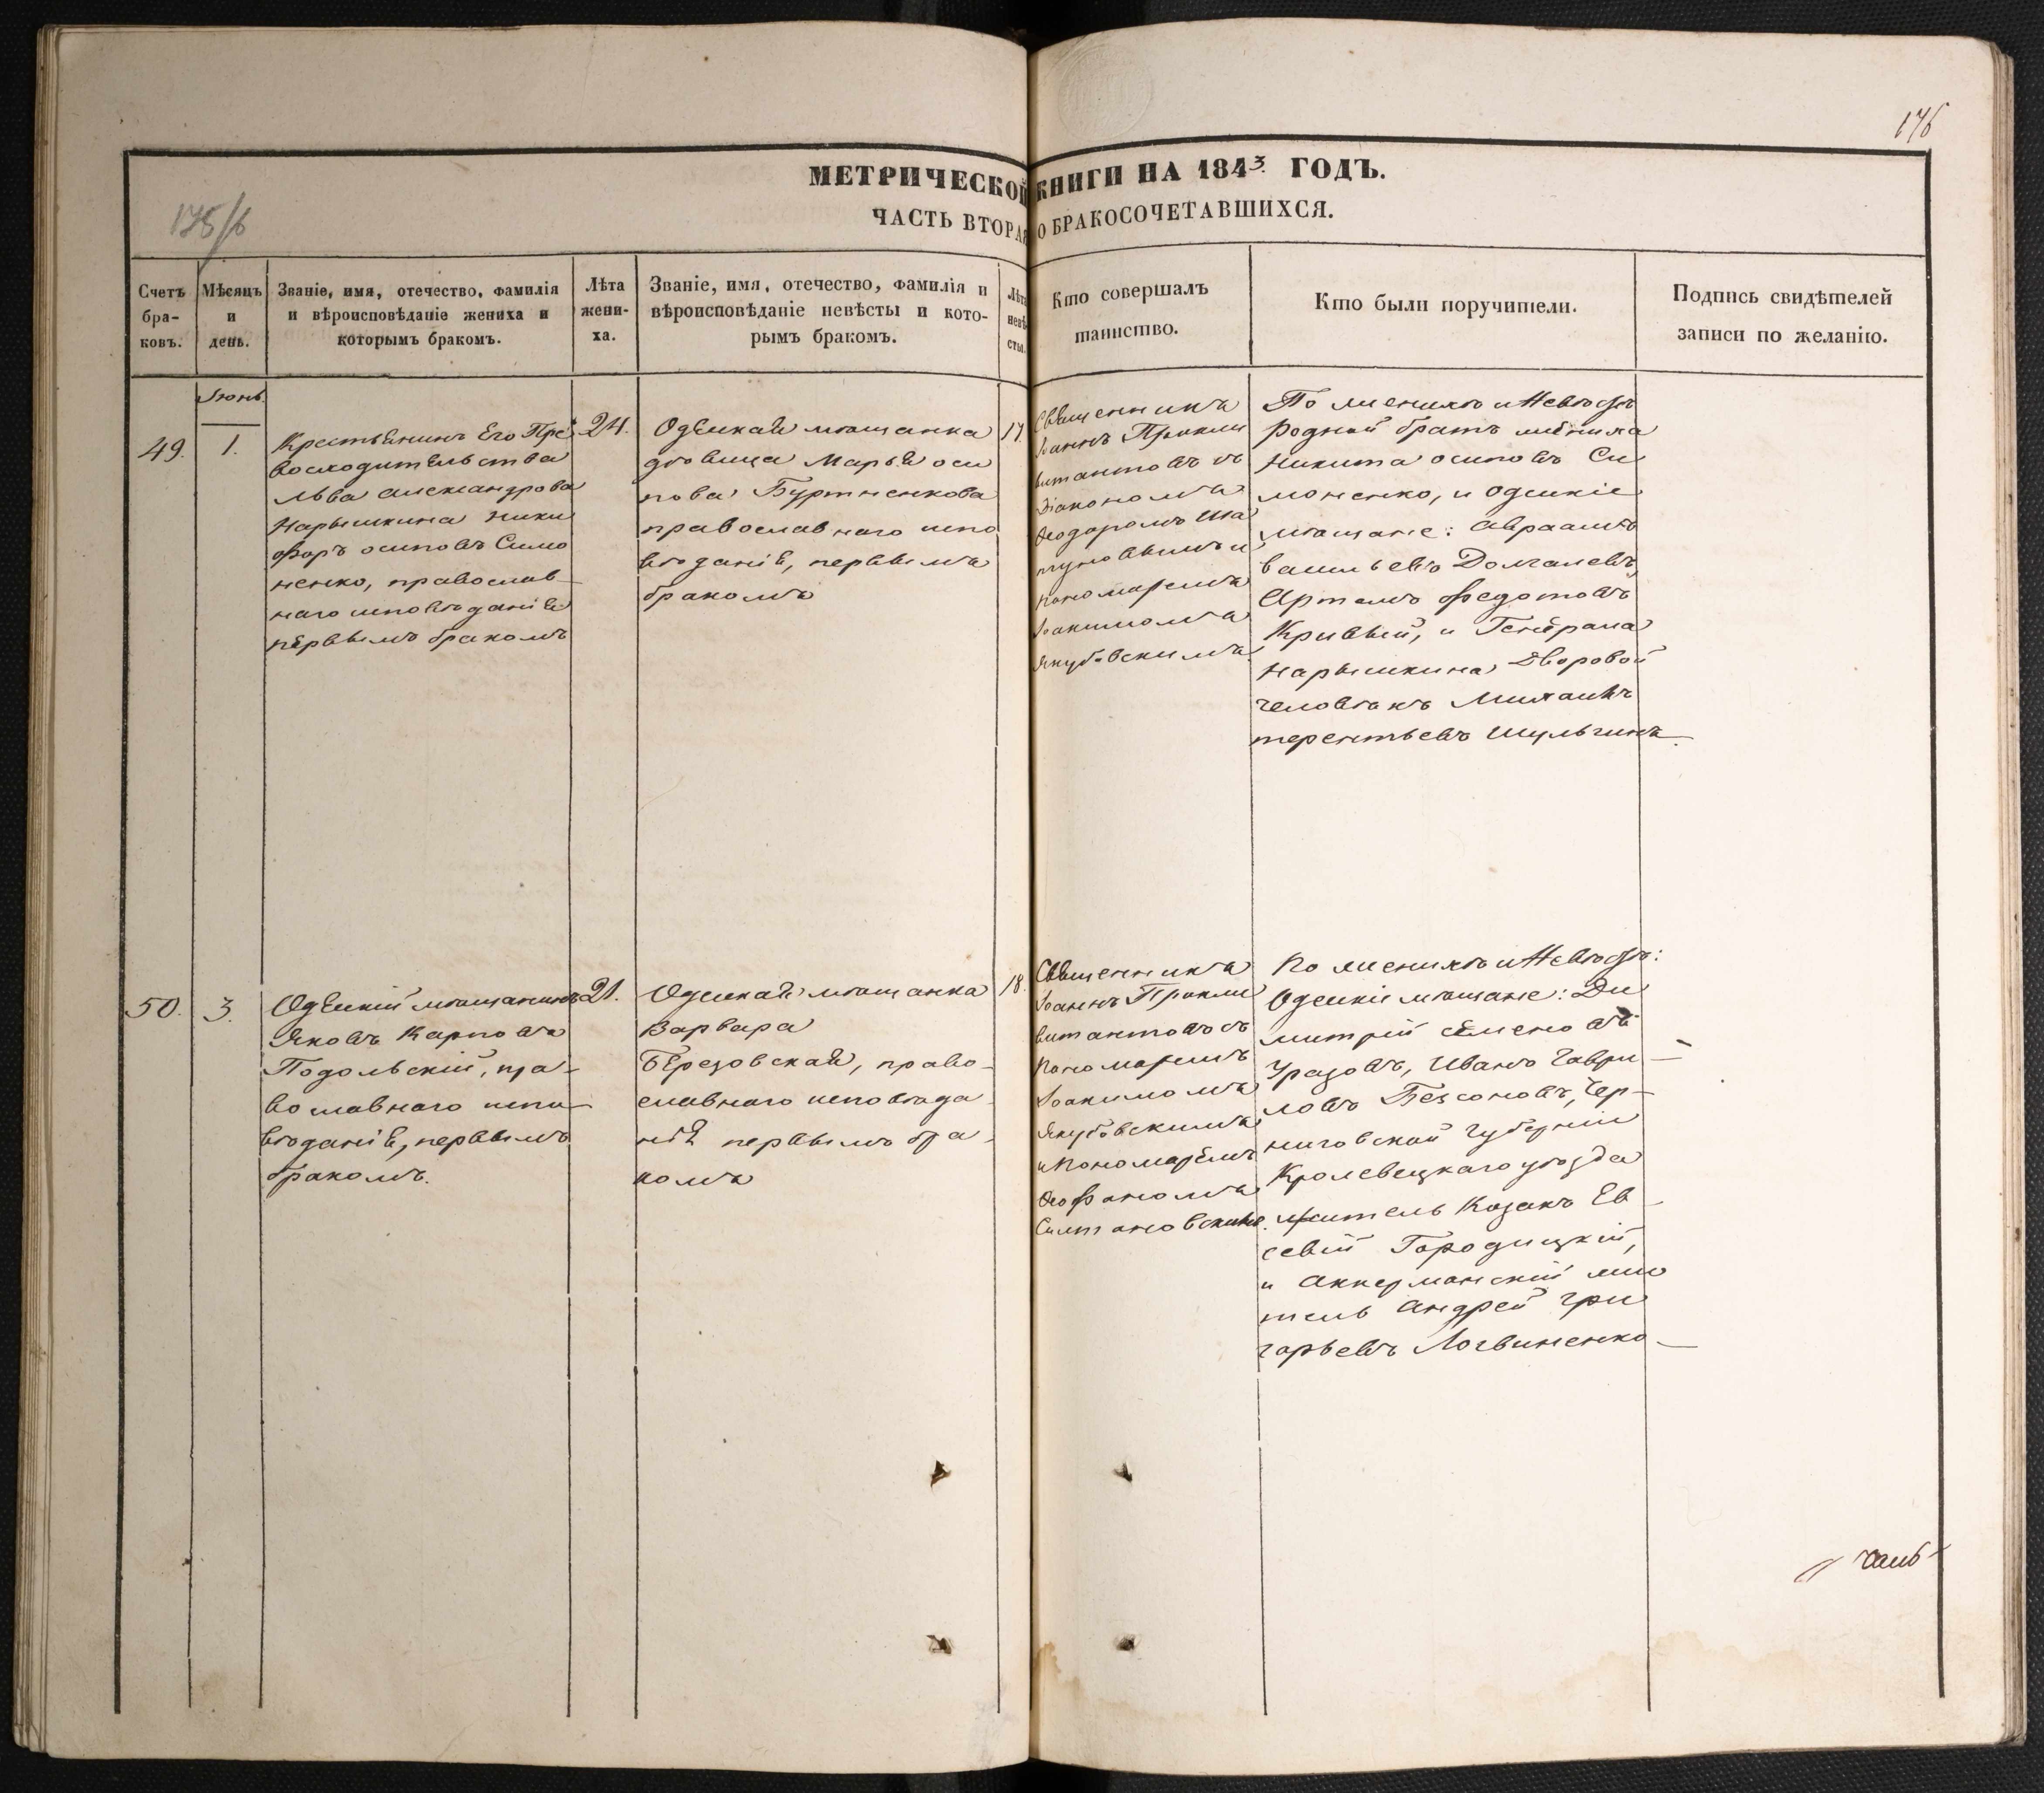 176
175/6
МЕТРИЧЕСКОЙ КНИГИ НА 1843. ГОДЪ.
ЧАСТЬ ВТОРАЯ О БРАКОСОЧЕТАВШИХСЯ.
Счетъ
бра-
ковъ.
Мѣсяцъ
и
день.
Званіе, имя, отечество, фамилія
и вѣроисповѣданіе жениха и
которымъ бракомъ.
Лѣта
жени-
ха.
Званіе, имя, отечество, фамилія и
вѣроисповѣданіе невѣсты и кото-
рымъ бракомъ.
Лѣта
невѣ-
сты.
Кто совершалъ
таинство.
Кто были поручители.
Подпись свидѣтелей
записи по желанію.
Іюнь.
49.
1.
Крестьянинъ Его Пре
восходительства
Льва Александрова
Нарышкина Ники
форъ осиповъ Симо
ненко, православ-
наго исповѣданія
первымъ бракомъ
24.
Одѣская мѣщанка
дѣвица Марья оси
пова Буртненкова
православнаго испо
вѣданія, первымъ
бракомъ
17.
Священникъ
Іоаннъ Прокли
витантовъ съ
Діакономъ
Ѳеодоромъ Ша
туновымъ и
пономаремъ
Іоакимомъ
Якубовскимъ
По женихѣ и Невѣстѣ
Родной братъ жениха
Никита осиповъ Си
моненко, и Одескіе
мѣщане: Авраамъ
васильевъ Долгалевъ,
Артемъ федотовъ
Кривый, и Генерала
Нарышкина Дворовой
человѣкъ Михаилъ
терентьевъ Шульгинъ.
50.
3.
Одѣскій мѣщанинъ
Яковъ Карповъ
Подольскій, пра-
вославнаго испо-
вѣданія, первымъ
бракомъ.
21.
Одеская мѣщанка
Варвара
Березовская, право-
славнаго исповѣда-
нія первымъ бра-
комъ
18.
Священникъ
Іоаннъ Прокли
витантовъ съ
пономаремъ
Іоакимомъ
Якубовскимъ
и Пономаремъ
Ѳеофаномъ
Симановскимъ.
По женихѣ и Невѣстѣ:
Одескіе мѣщане: Ди
митрій семеновъ
Уразовъ, Иванъ Гаври-
ловъ Безсоновъ, Чер-
ниговской губерніи
Кролевецкаго уѣзда
житель Козакъ Ев-
севій Городицкій,
и Аккерманскій жи
тель Андрей Гри
горьевъ Логвиненко